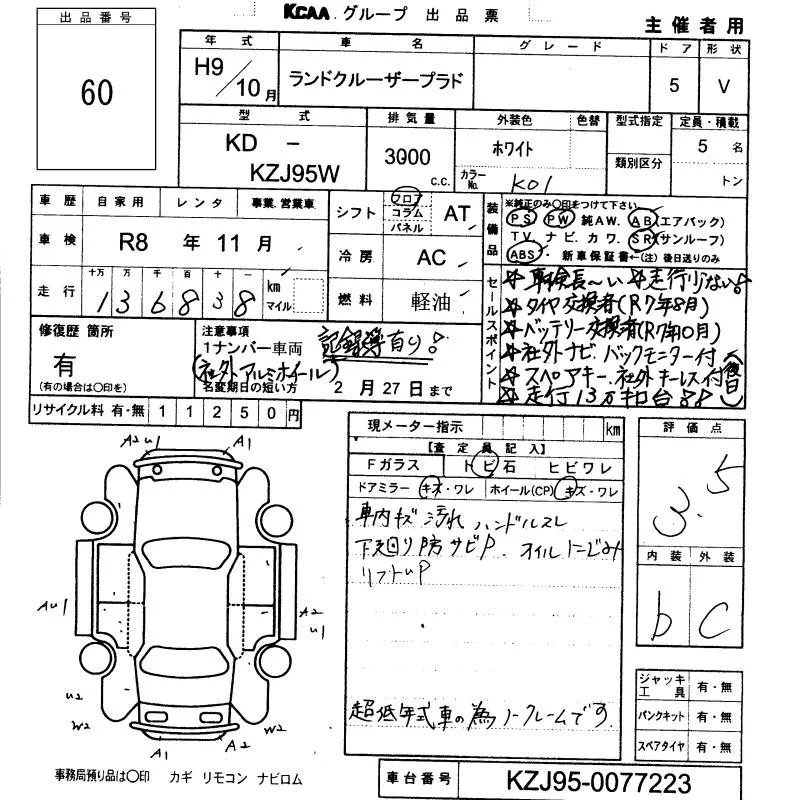 KCAA グループ 出品票
主催者用
出品番号
60
年式 車名 グレード ドア 形状
H9/10月 ランドクルーザープラド 5 V
型式 排気量 外装色 色替 型式指定 定員・積載
KD -
KZJ95W
3000 c.c.
ホワイト
カラーNo. K01
類別区分
5 名
トン
車歴 自家用 レンタ 事業.営業車
車検 R8 年 11 月
走行 十万 万 千 百 十 一
136838 km マイル
シフト フロア コラム パネル AT
冷房 AC
燃料 軽油
装備品
※純正のみ〇印をつけて下さい
PS PW 純AW. AB(エアバック)
TV ナビ.カワ. SR(サンルーフ)
ABS・ 新車保証書←(注) 後日送りのみ
セールスポイント
☆車検長〜い ☆走行少ない!
☆タイヤ交換済(R7年8月)
☆バッテリー交換済(R7年10月)
☆社外ナビ.バックモニター付
☆スペアキー.社外キーレス付(後日)
☆走行13万キロ台!!
修復歴 箇所
有
(有の場合は〇印を)
注意事項
1ナンバー車両
記録簿有り!
(社外アルミホイール)
名変期日の短い方 2 月 27日 まで
リサイクル料 有・無 11250円
現メーター指示 km
【査定員記入】
Fガラス トビ石 ヒビワレ
ドアミラー キズ・ワレ ホイール(CP) キズ・ワレ
車内キズ 汚れ ハンドルスレ
下廻り防サビP. オイルにじみ
リフトUP
超低年式車の為ノークレームです
評価点
3.5
内装 外装
b C
A2U1 A1
AU1 A2
U1
U2
W2 W2
A1 A2
ジャッキ工具 有・無
パンクキット 有・無
スペアタイヤ 有・無
事務局預り品は〇印 カギ リモコン ナビロム
車台番号 KZJ95-0077223